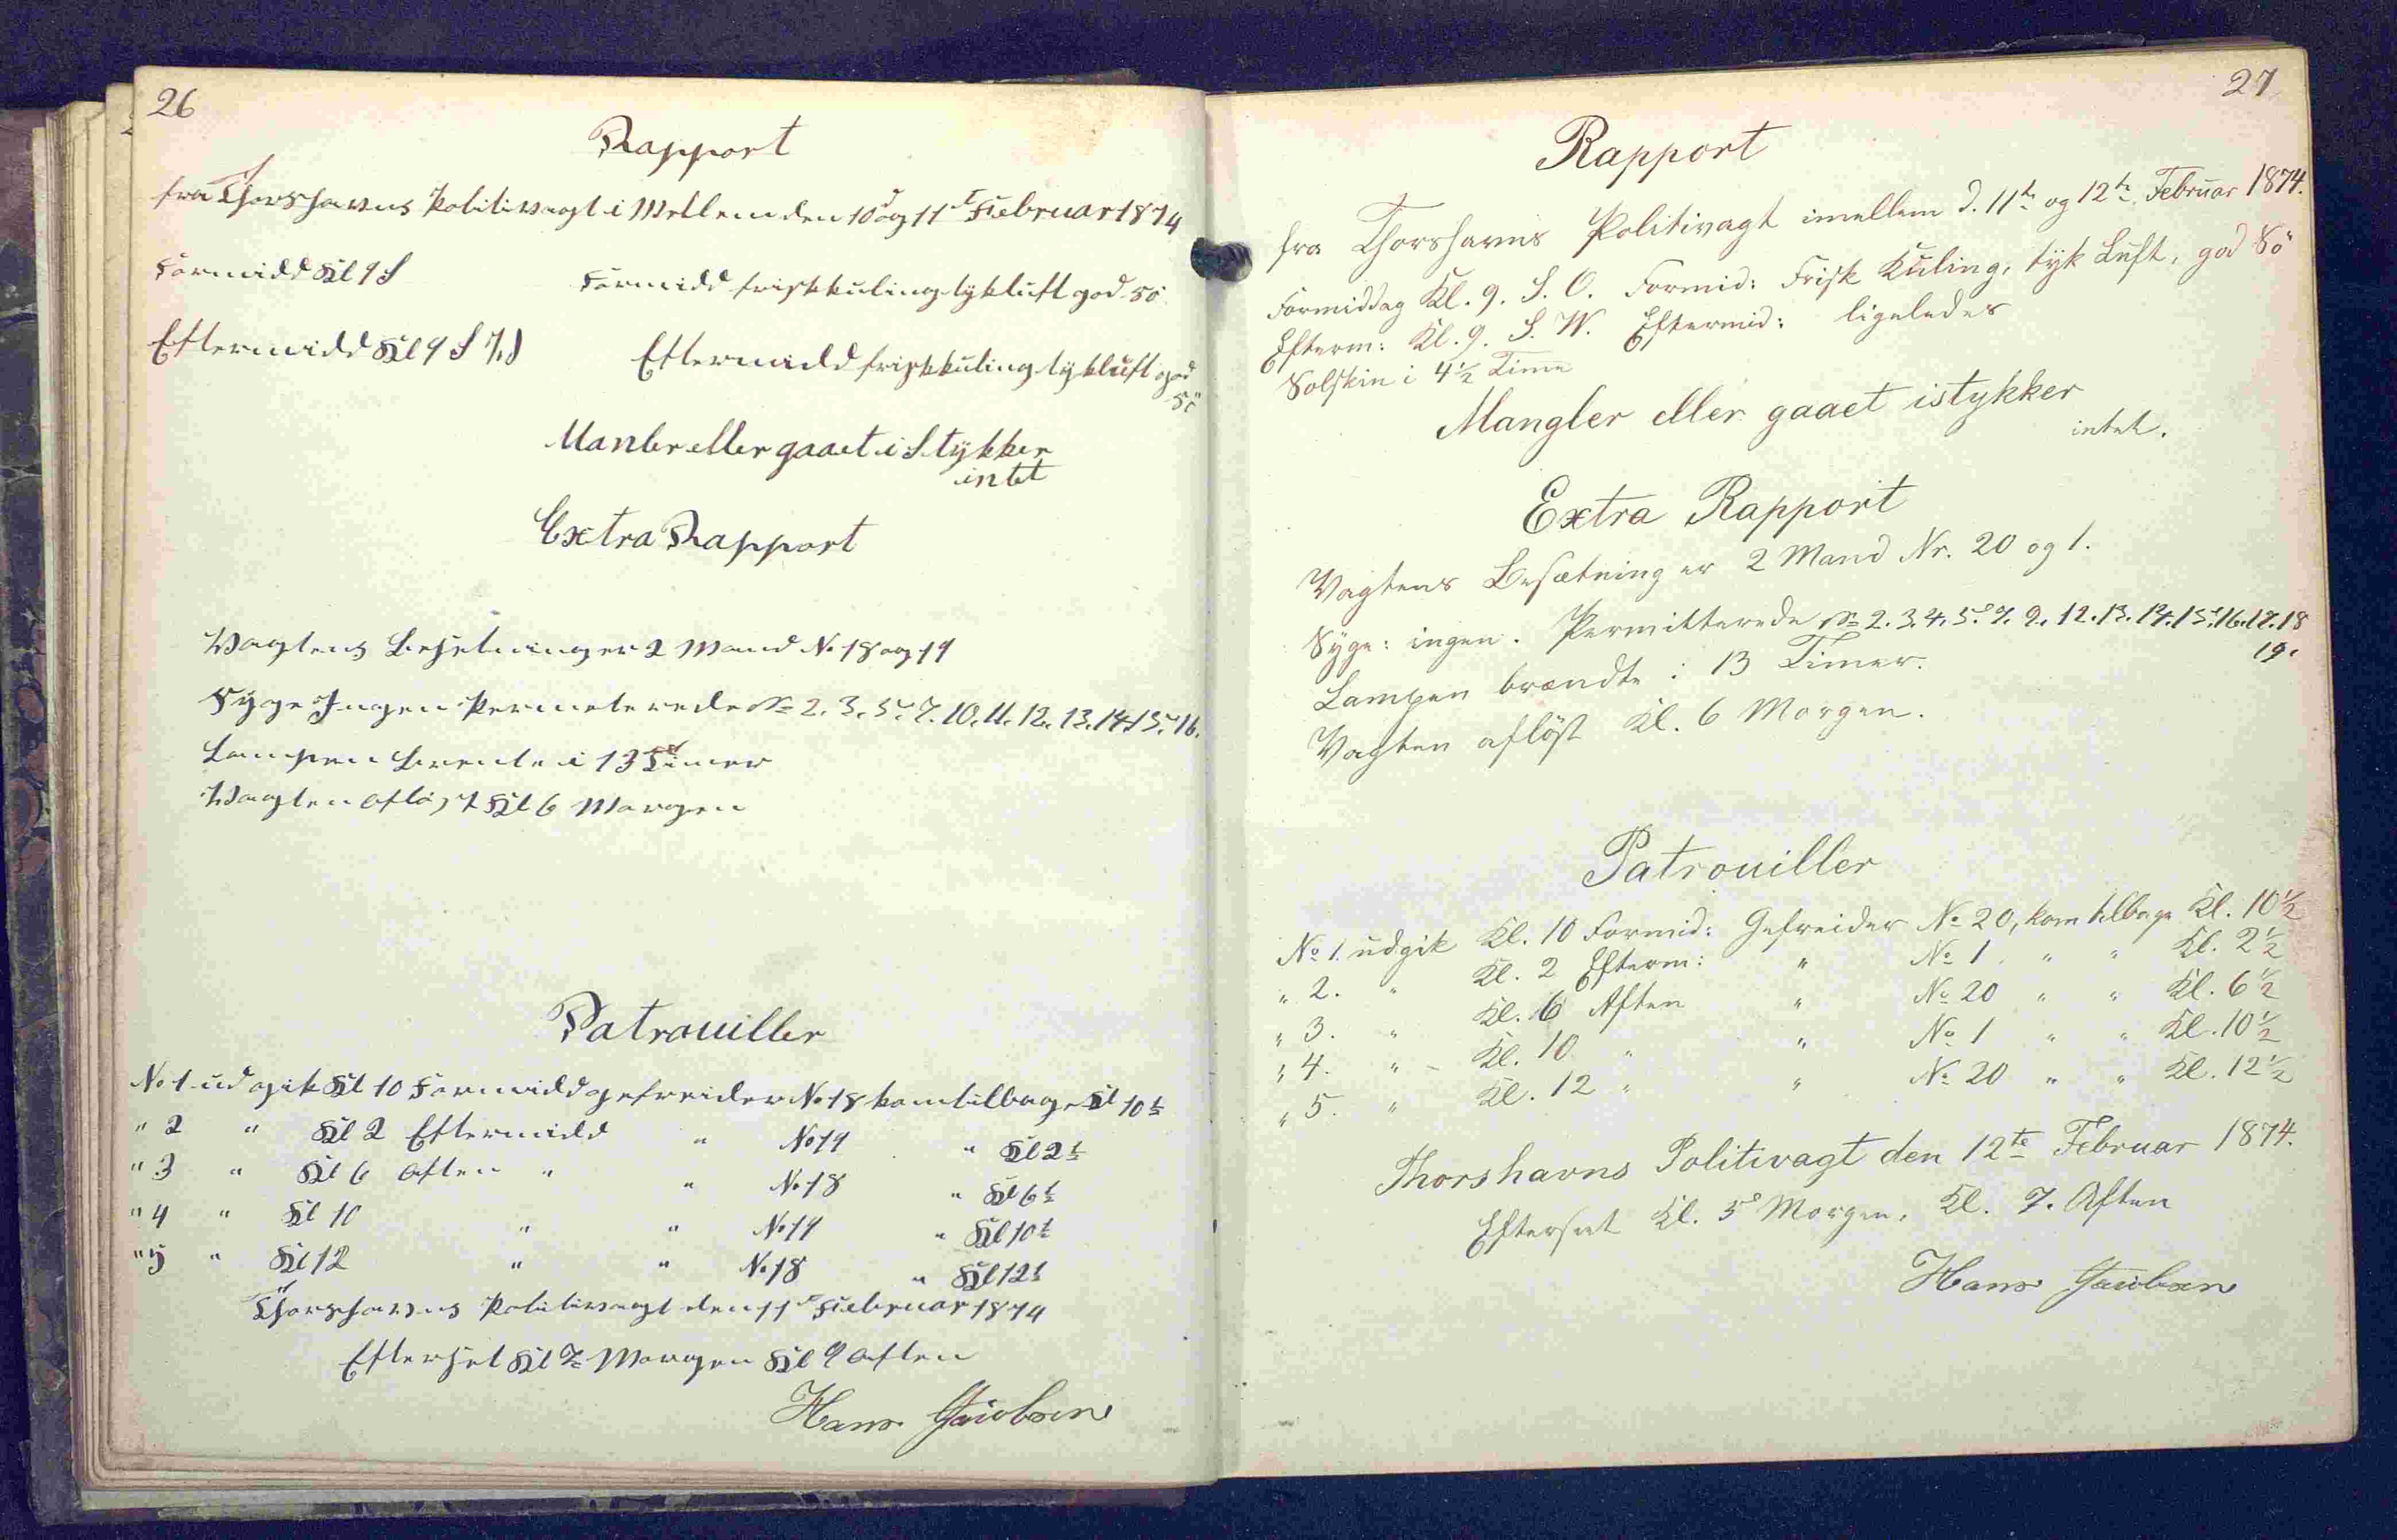 26
Rapport
fra Thorshavns Politivagt i Mellem den 10d og 11t Februar 1874
Formidd Kl 9 S
Formidd frisk kuling tykluft god Sö
Eftermidd Kl 9 S
Eftermidd frisk kuling tykluft god
Sö
Manler eller gaaet i Stykker
intet
Extra Rapport
Vagtens Besetning er 2 Mand No 18 og 19
Syge Ingen Permeterede No 2. 3. 5. 7. 10. 11. 12. 13. 14. 15. 16.
Lampen brente i 13 Timer
Vagten aflöst Kl 6 Morgen
Patrouiller
No 1 udgik Kl 10 Formidd gefreider No 18 kom tilbage Kl 10½
" 2 " Kl 2 Eftermidd " No 19 " Kl 2½
" 3 " Kl 6 Aften " " No 18 " Kl 6½
" 4 " Kl 10 " " No 19 " Kl 10½
" 5 " Kl 12 " " No 18 " Kl 12½
Thorshavns Politivagt den 11t Februar 1874
Efterset Kl 7 Morgen Kl 9 Aften
Hans Jacobsen
27
Rapport
fra Thorshavns Politivagt imellem d. 11te og 12te Februar 1874.
Formiddag Kl. 9. S. O. Formid: Frisk Kuling, tyk Luft, god Sö
Efterm: Kl. 9. S. W. Eftermid: ligeledes
Solskin i 4½ Time
Mangler eller gaaet istykker
intet.
Extra Rapport
Vagtens Besætning er 2 Mand Nr. 20 og 1.
Syge: ingen. Permitterede No 2. 3. 4. 5. 7. 9. 12. 13. 14. 15. 16. 17. 18
19.
Lampen brændte i 13 Timer.
Vagten aflöst Kl. 6 Morgen.
Patrouiller
No 1. udgik Kl. 10 Formid: Gefreider No 20, kom tilbage Kl. 10½
" 2. " Kl. 2 Efterm: " No 1 " " Kl. 2½
" 3. " Kl. 6 Aften " No 20 " " Kl. 6½
" 4. " - Kl. 10 " " No 1 " " Kl. 10½
" 5. " Kl. 12 " " No 20 " " Kl. 12½
Thorshavns Politivagt den 12te Februar 1874.
Efterset Kl. 5 Morgen, Kl. 7. Aften
Hans Jacobsen